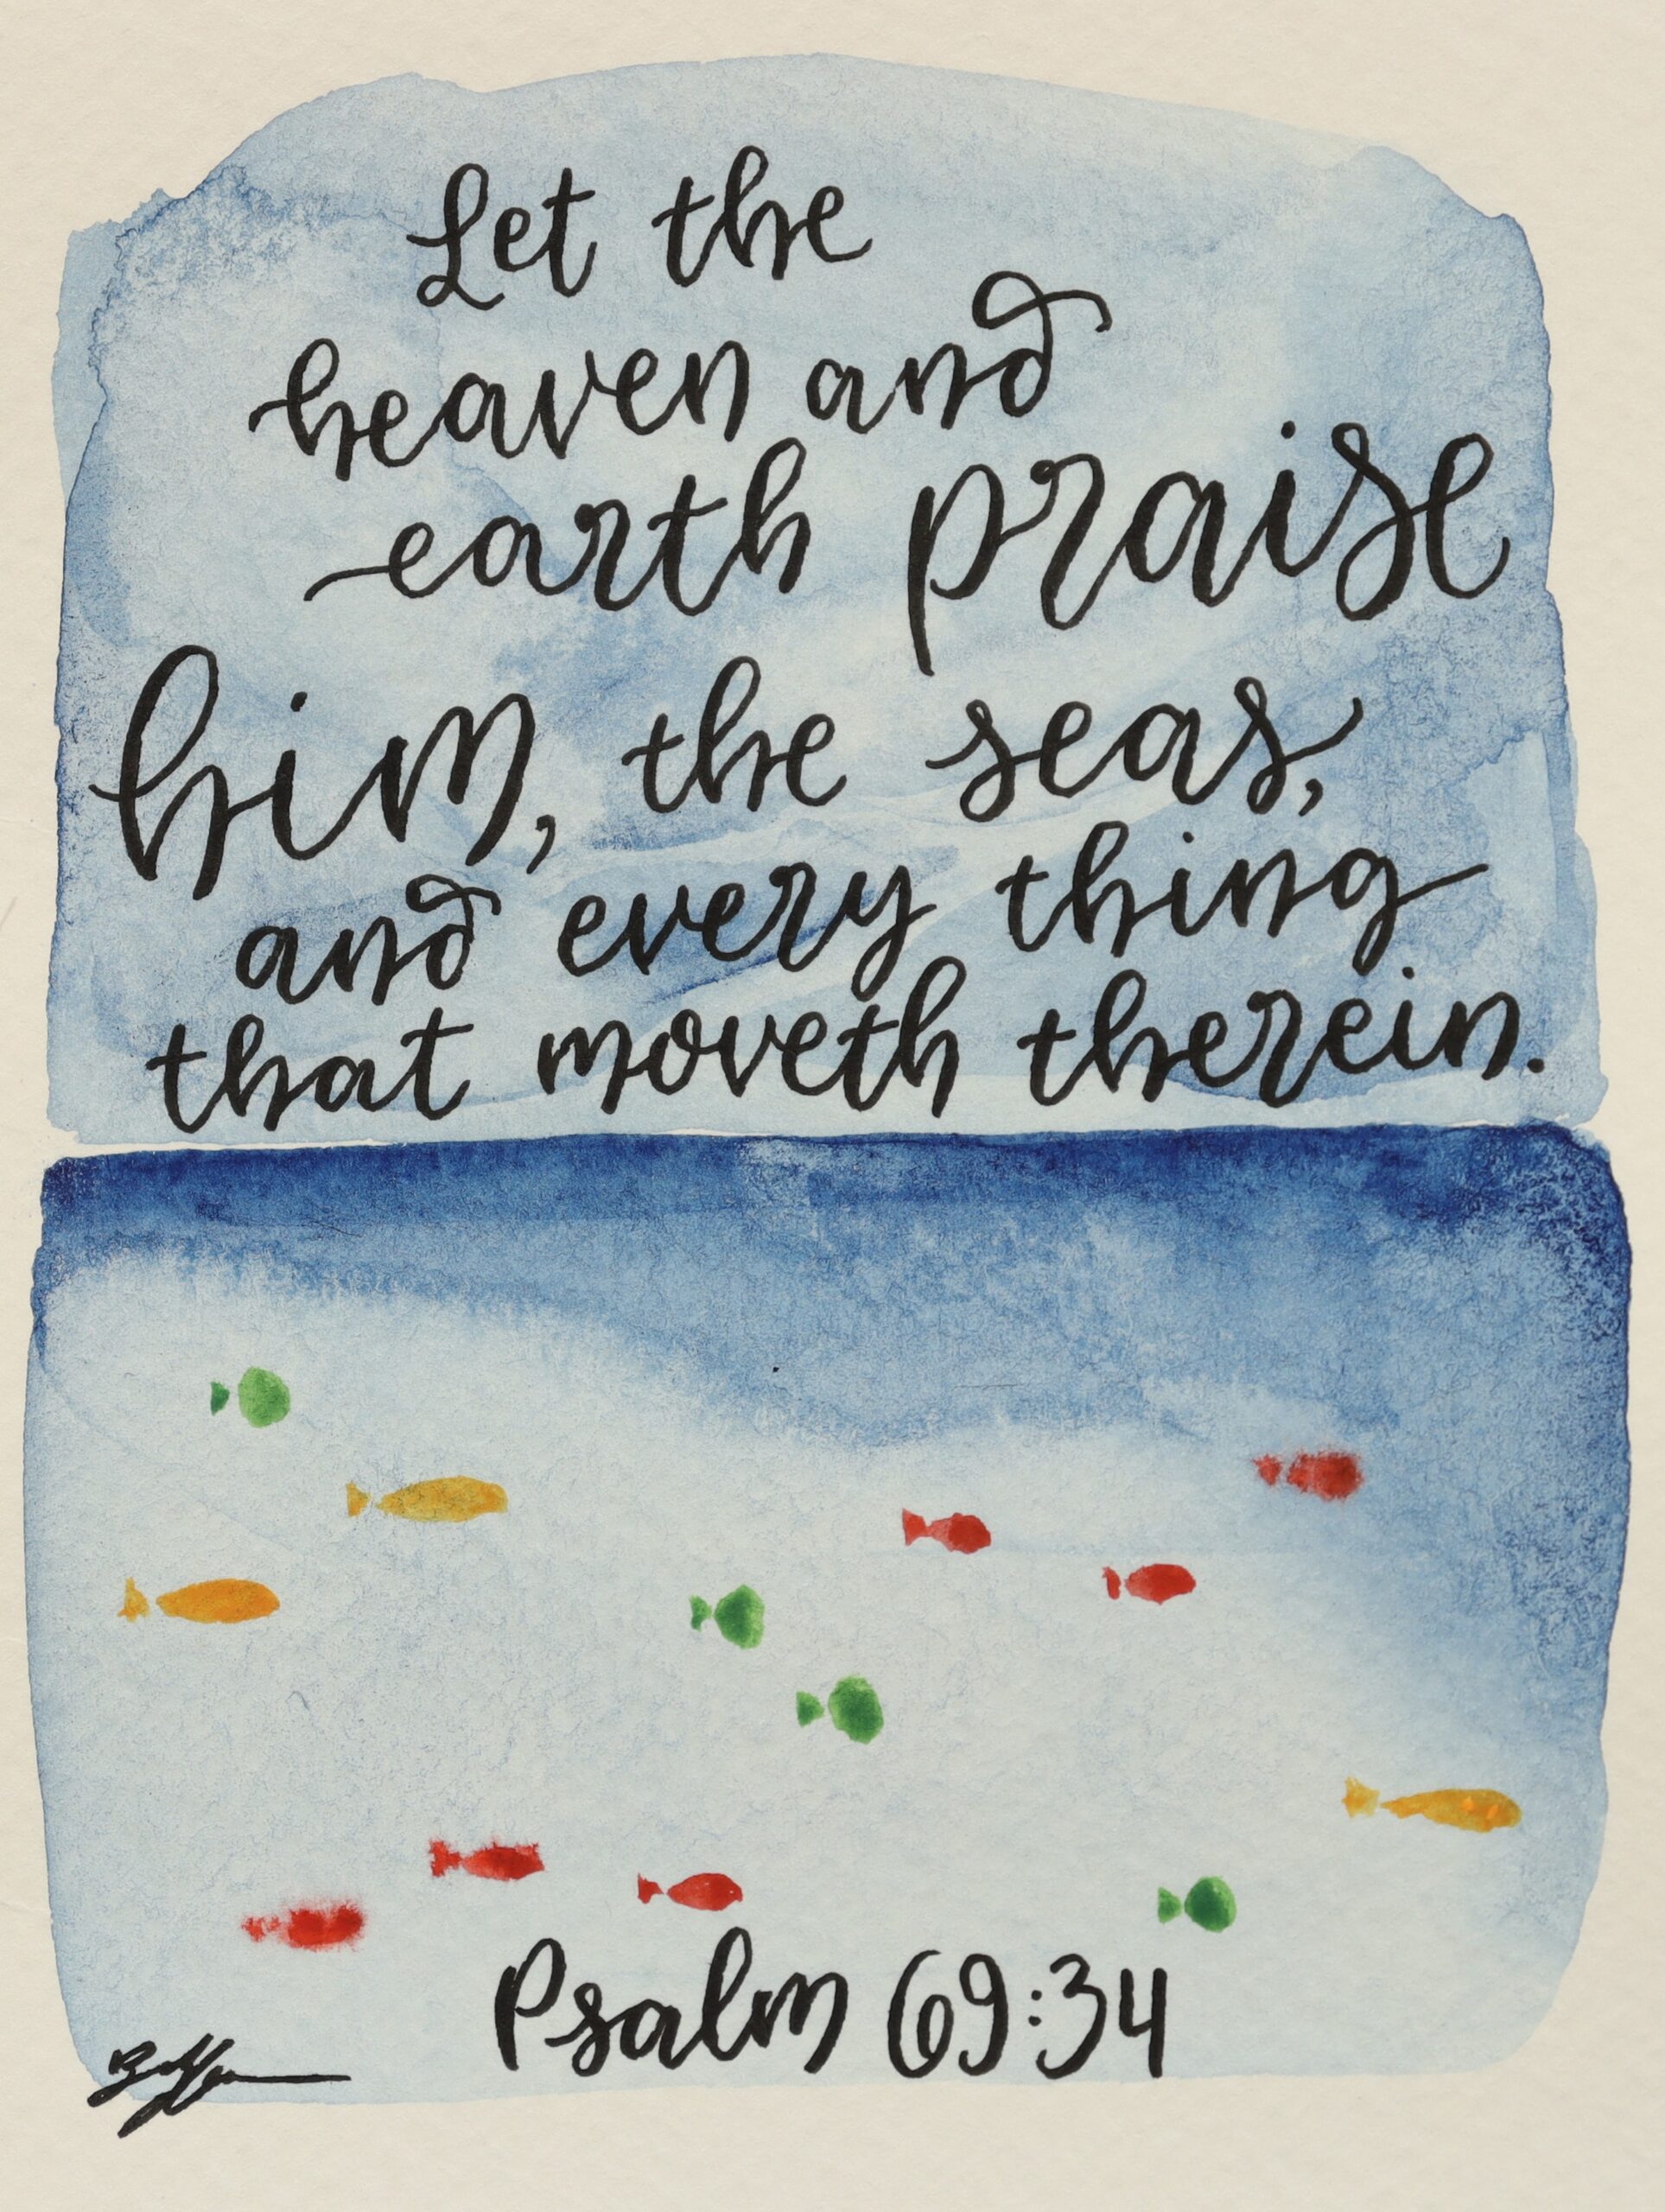 Let the
heaven and
earth praise
him, the seas,
and every thing
that moveth therein.
Psalm 69:34